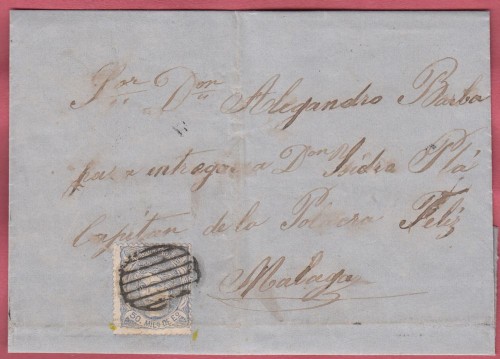 Por Don Alejandro Barba
para entregar a Don Isidro Plá
Capitan de la Polacra Feliz
Malaga
50 MILS DE E.